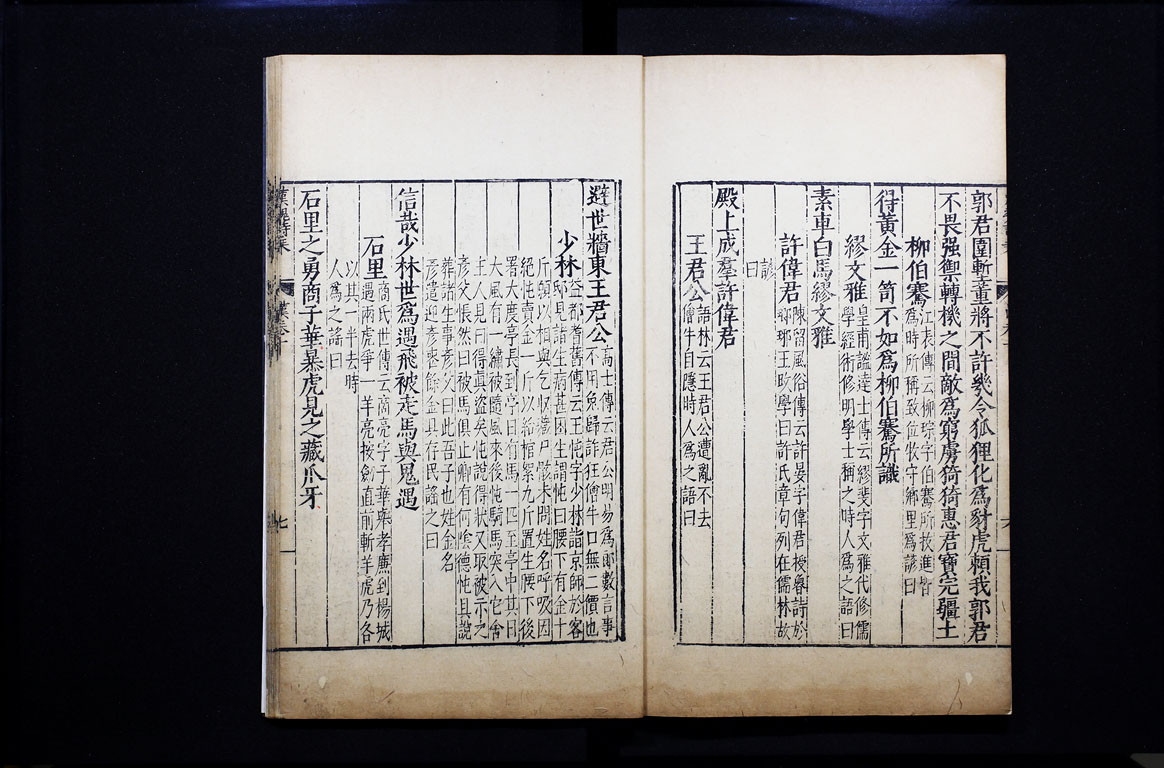 郭君圍塹董將不許幾令狐狸化為豺虎賴我郭君
不畏强禦轉機之間敵為窮虜猗猗惠君寶完疆土
柳伯騫江表傳云柳琮字伯騫所拔進皆
為時所稱致位牧守鄉里為諺曰
得黃金一笥不如為柳伯騫所識
繆文雅皇甫謐達士傳云繆斐字文雅代修儒
學經術修明學士稱之時人為之語曰
素車白馬繆文雅
許偉君陳留風俗傳云許晏字偉君授魯詩於
琊王政學曰許氏章句列在儒林故
諺曰
殿上成羣許偉君
王君公語林云王君公遭亂不去
儈牛自隱時人為之語曰
避世牆東王君公高士傳云君公明易為郎數言事
不用免歸詐狂儈牛口無二價也
少林益都耆舊傳云王忳字少林詣京師於客
邸見諸生病甚困生謂忳曰腰下有金十
斤願以相與乞收藏尸骸未問姓名呼吸因
絕忳賣金一斤以給棺絮九斤置生腰下後
署大度亭長到亭日有馬一匹至亭中其日
大風有一繡被隨風來後忳騎馬突入它舍
主人見曰得真盜矣忳說得狀又取被示之
彥父悵然曰被馬俱止卿有何陰德忳具說
葬諸生事彥父曰此吾子也姓金名
彥遣迎彥喪餘金具存民謠之曰
信哉少林世為遇飛被走馬與鬼遇
石里商氏世傳云商亮字子華舉孝廉到楊城
遇兩虎爭一羊亮按劍直前斬羊虎乃各
以其一半去時
人為之謠曰
石里之勇商子華暴虎見之藏爪牙
七